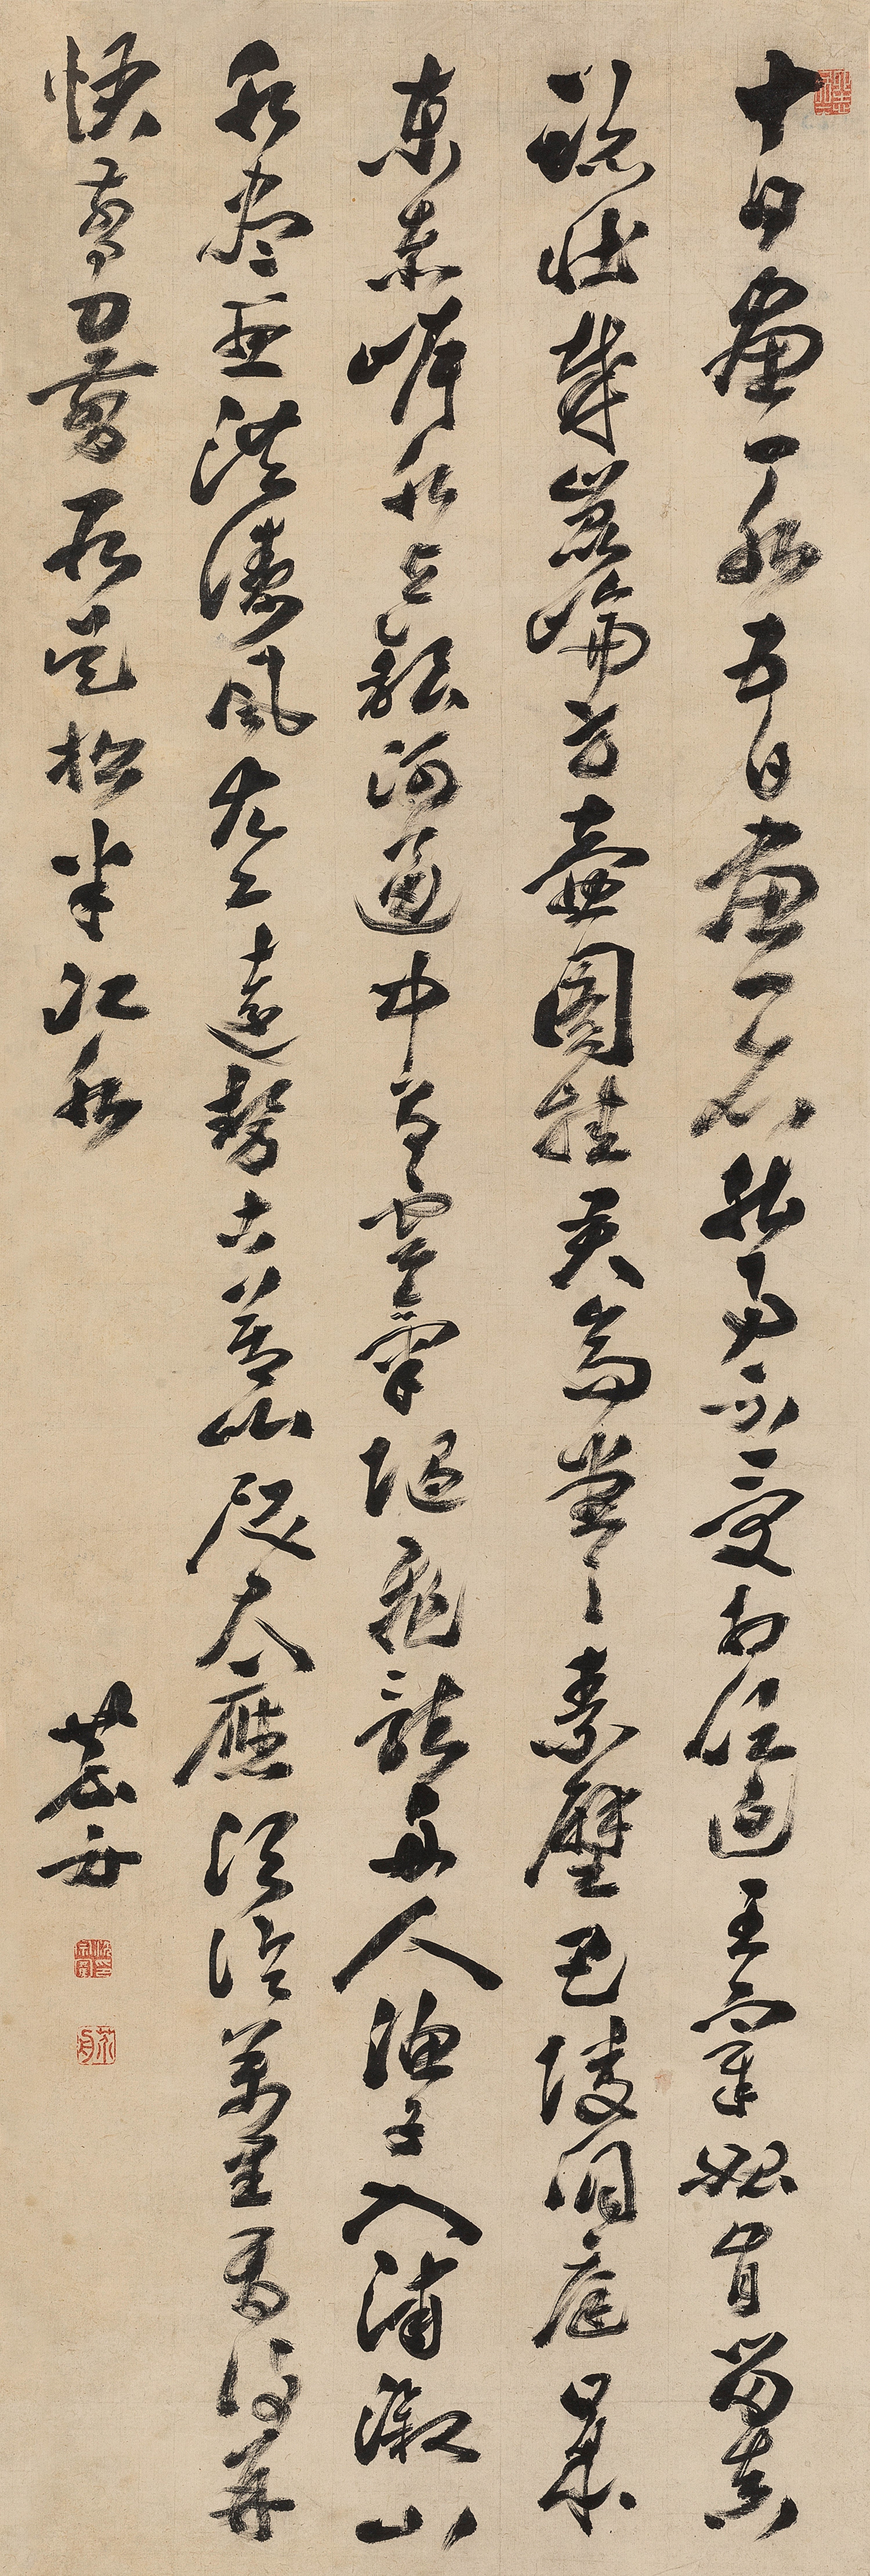 十日畫一水五日畫一石能事不受相促迫王宰始肯留真
跡壯哉崑崙方壺圖挂君高堂之素壁巴陵洞庭日本
東赤岸水與銀河通中有雲氣隨飛龍舟人漁子入浦漵山
木盡亞洪濤風尤工遠勢古莫比咫尺應須論萬里焉得并
快剪刀剪取吳松半江水